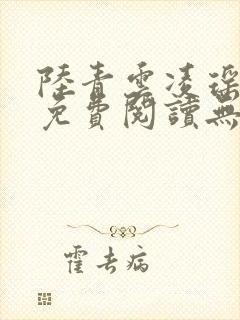 陸青雲凌瑶
免費閱讀無
霍去病